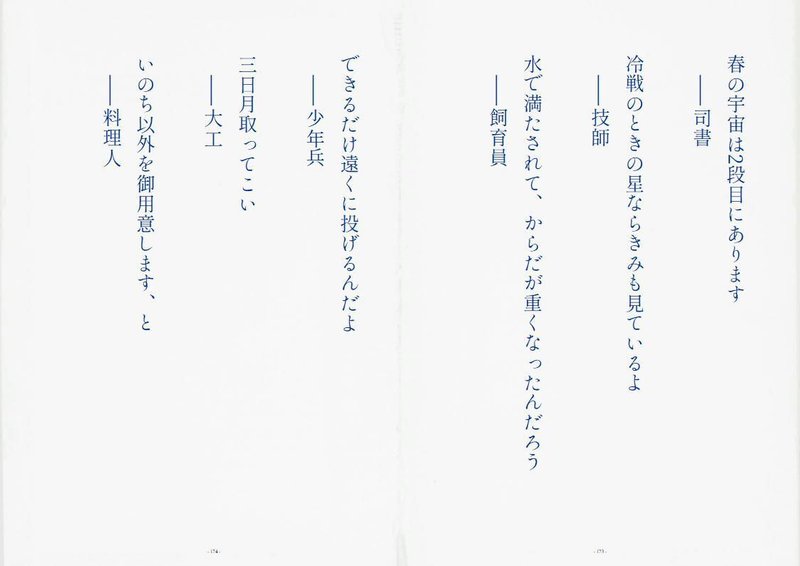 春の宇宙は2段目にあります
――司書
冷戦のときの星ならきみも見ているよ
――技師
水で満たされて、からだが重くなったんだろう
――飼育員
- 173 -
できるだけ遠くに投げるんだよ
――少年兵
三日月取ってこい
――大工
いのち以外を御用意します、と
――料理人
- 174 -